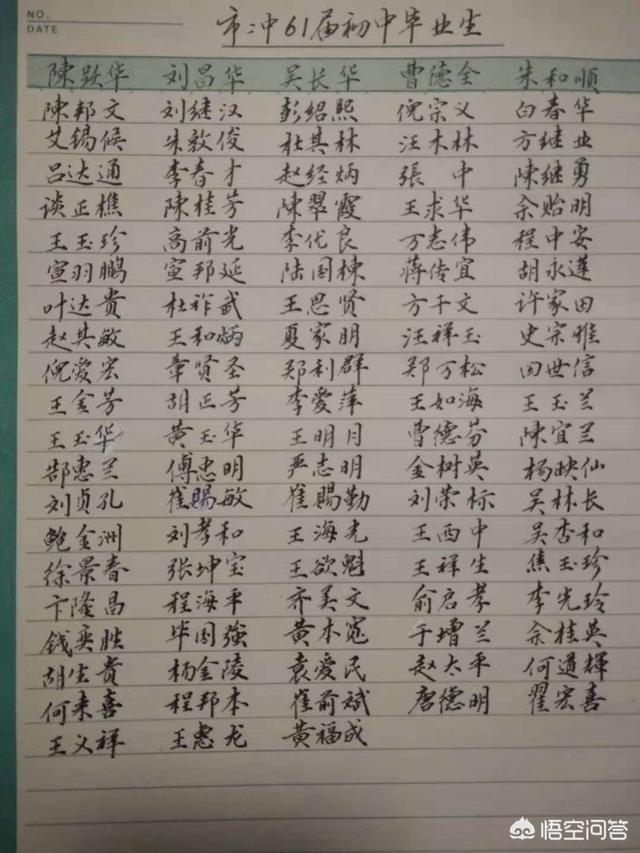 NO.
DATE
市二中61届初中毕业生
陳跃华 刘昌华 吴长华 曹德全 朱和順
陳邦文 刘继汉 彭绍熙 倪宗义 白春华
艾锡候 朱敦俊 杜其林 汪木林 方继业
吕达通 李春才 赵经炳 張中 陳继勇
谈正樵 陳桂芳 陳翠霞 王求华 余贻明
王玉珍 高前光 李优良 万志伟 程中安
宣羽鹏 宣邦延 陆国栋 蒋传宜 胡永莲
叶达贵 杜祚武 王思贤 方千文 许家田
赵其敏 王和炳 夏家明 汪祥玉 史宗雅
倪爱宏 章贤圣 郑利群 郑万松 田世信
王金芳 胡正芳 李愛萍 王如海 王玉兰
王玉华 黄玉华 王明月 曹德芬 陳宜兰
郜惠兰 傅忠明 严志明 金树英 杨映仙
刘贞孔 崔賜敏 崔賜勤 刘荣标 吴林长
鲍金洲 刘孝和 王海光 王西中 吴杏和
徐景春 张坤宝 王欲魁 王祥生 焦玉珍
卞隆昌 程海平 齐美文 俞启孝 李光玲
钱奕胜 毕国強 黄本宽 于增兰 余桂英
胡生贵 杨金陵 袁爱民 赵太平 何道輝
何来喜 程邦本 崔前斌 唐德明 翟宏善
王义祥 王惠龙 黄福成
悟空问答